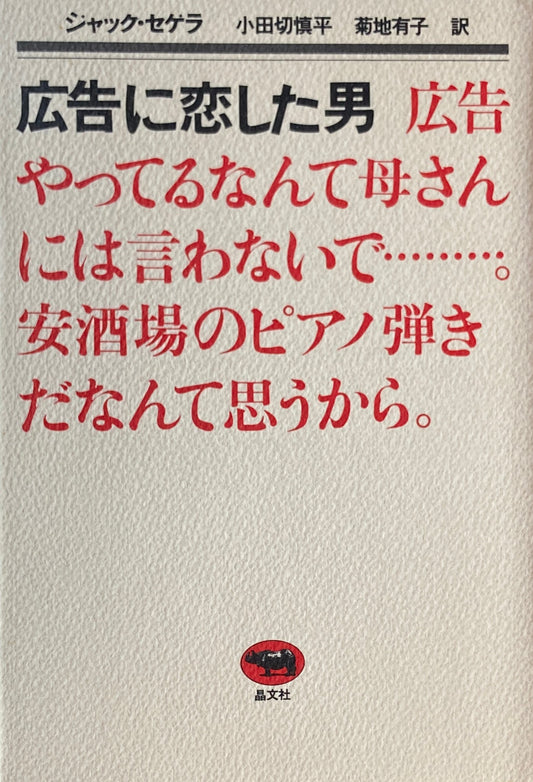 ジャック・セゲラ 小田切慎平 菊地有子 訳
広告に恋した男 広告
やってるなんて母さん
には言わないで………。
安酒場のピアノ弾き
だなんて思うから。
晶文社